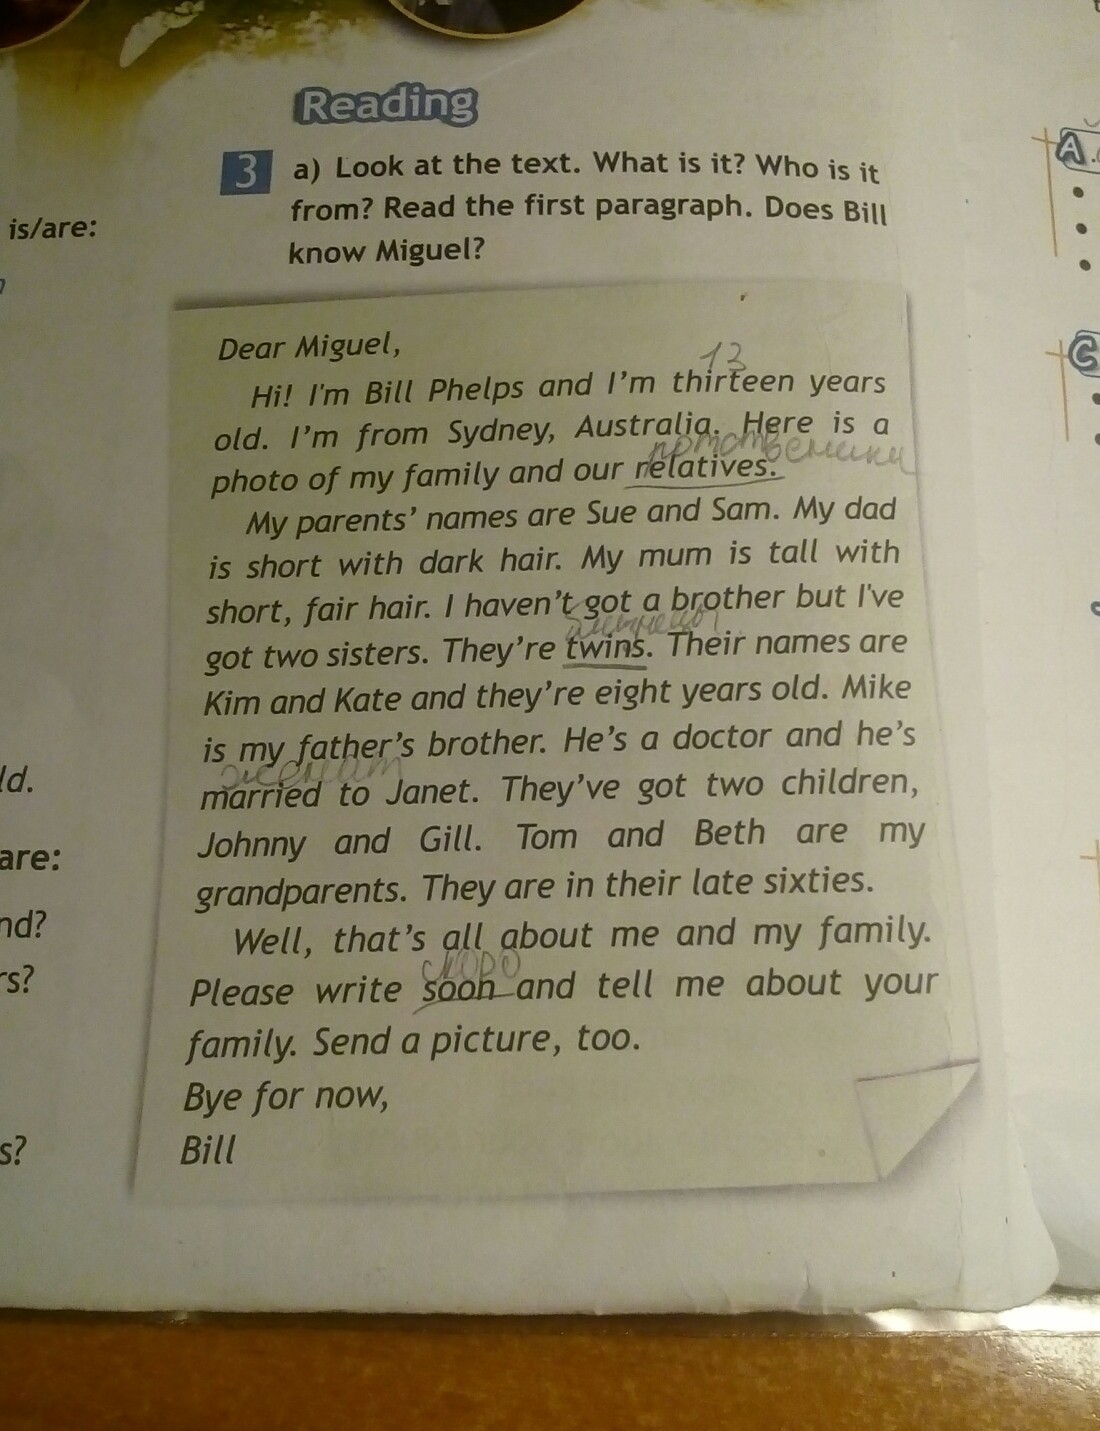 Reading
3 a) Look at the text. What is it? Who is it
from? Read the first paragraph. Does Bill
know Miguel?
is/are:
Dear Miguel,
13
Hi! I'm Bill Phelps and I'm thirteen years
old. I'm from Sydney, Australia. Here is a
photo of my family and our relatives.
My parents' names are Sue and Sam. My dad
is short with dark hair. My mum is tall with
short, fair hair. I haven't got a brother but I've
got two sisters. They're twins. Their names are
Kim and Kate and they're eight years old. Mike
is my father's brother. He's a doctor and he's
женат
married to Janet. They've got two children,
Johnny and Gill. Tom and Beth are my
grandparents. They are in their late sixties.
Well, that's all about me and my family.
скоро
Please write soon and tell me about your
family. Send a picture, too.
Bye for now,
Bill
ld.
are:
nd?
rs?
s?
A
C